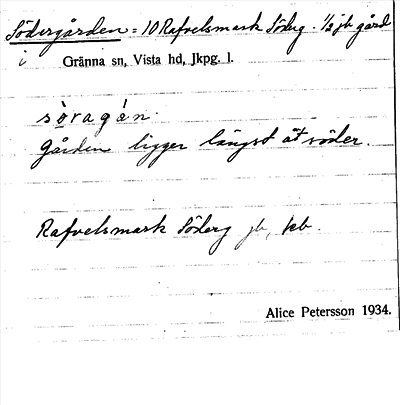 Södergården = 10 Rafvelsmark Söderg. 1/2 jb gård
i Gränna sn, Vista hd, Jkpg. l.
sö̀ragán.
Gården ligger längst åt söder.
Rafvelsmark Söderg jb, kb.
Alice Petersson 1934.